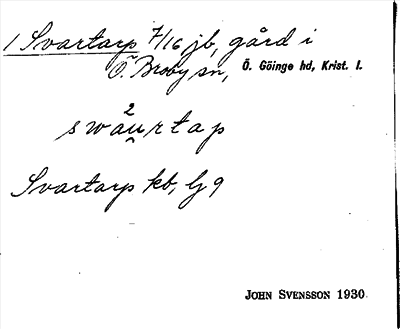 1 Svartarp 7/16 jb, gård i
Ö. Broby sn, Ö. Göinge hd, Krist. l.
2
swåurtap
Svartarp kb, Lj 9
JOHN SVENSSON 1930